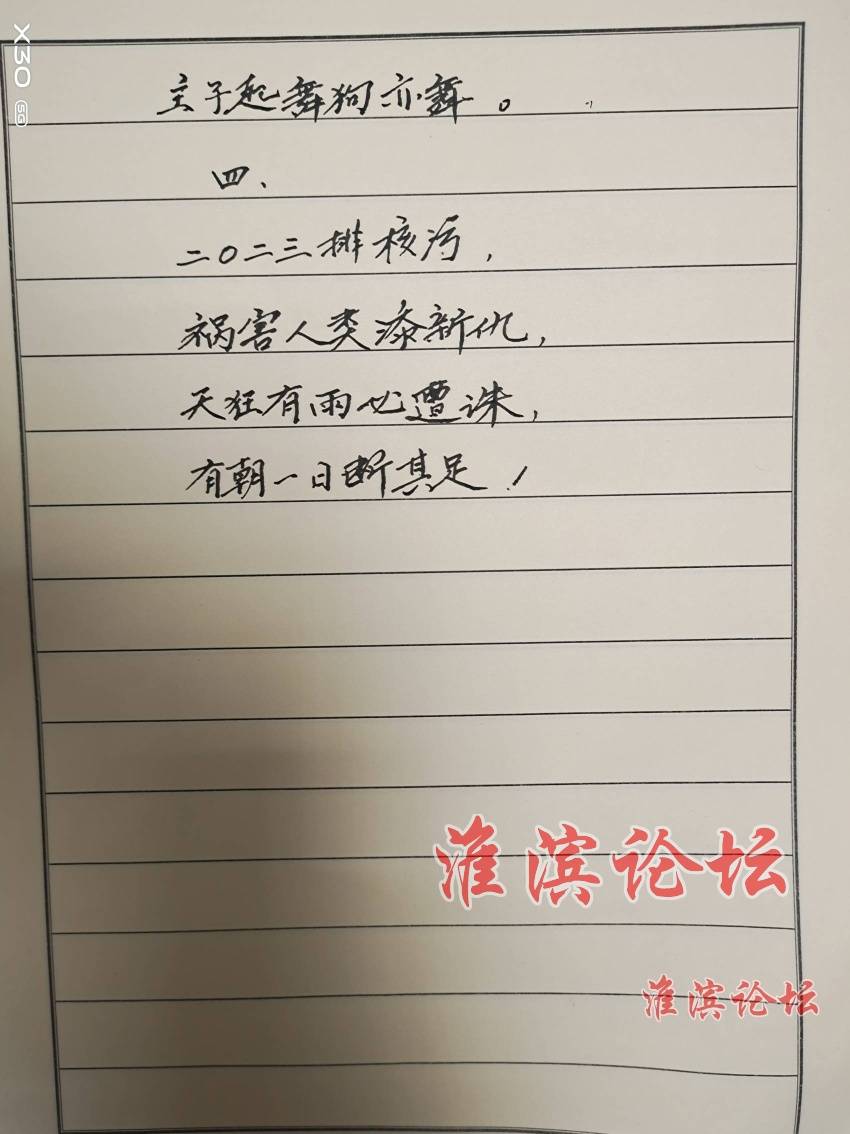 X30 5G
主子起舞狗亦舞。
四、
二〇二三排核污,
祸害人类添新仇,
天狂有雨必遭诛,
有朝一日断其足!
淮滨论坛
淮滨论坛